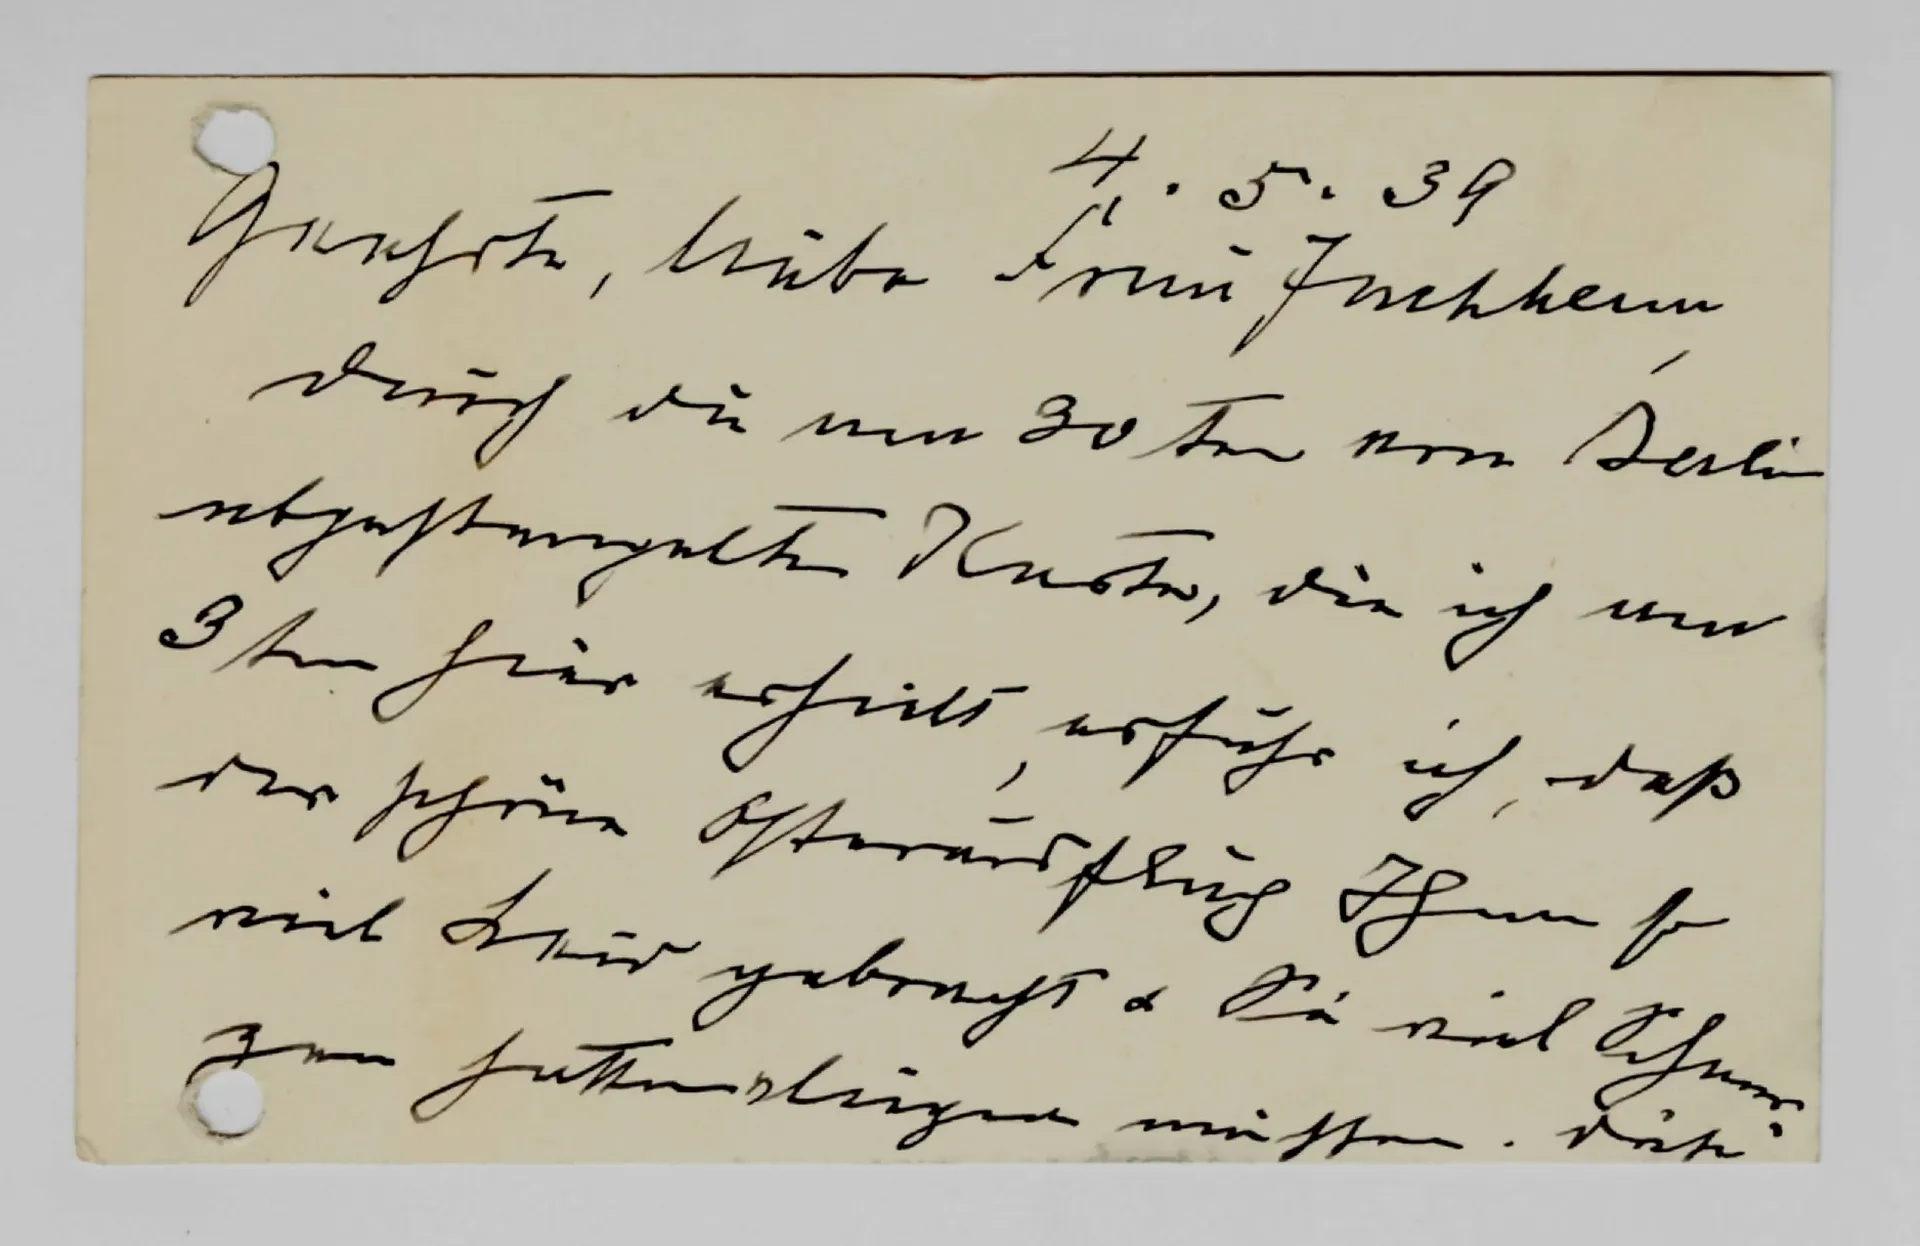 4. 5. 39
Geehrte, liebe Frau Jachheim,
durch die am 30ten von Berlin
abgestempelte Karte, die ich am
3ten hier erhielt, erfuhr ich, daß
der schöne Osterausflug Ihnen so
viel Leid gebracht & Sie viel Schmer-
zen hatten müssen.